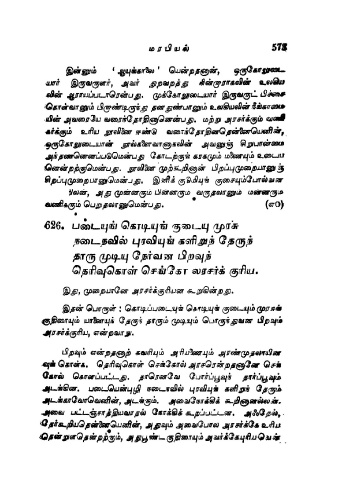 மரபியல் 573
இன்னும் 'ஆயுங்காலை' யென்றதனான், ஒருகோலுடை
யார் இருவருளர், அவர் துறவறத்து நின்றாராகலின் உலகிய
லின் ஆராயப்படாரென்பது. முக்கோலுடையார் இருவருட் பிச்சை
கொள்வானும் பிறாண்டிருந்து தனதுண்பானும் உலகியலின் நீங்காமை
யின் அவரையே வரைந்தோதினானென்பது. மற்று அரசர்க்கும் வணி
கர்க்கும் உரிய நூலினை ஈண்டு வரைந்தோதினதென்னையெனின்,
ஒருகோலுடையான் நூல்களைவானாகலின் அவனுஞ் சிறுபான்மை
அந்தணனெனப்படுமென்பது கோடற்குங் கரகமும் மணையும் உடைய
னென்றற்குமென்பது. நூலினை முற்கூறினான் பிறப்புமுறையானுஞ்
சிறப்புமுறையானுமென்பது. இனிக் குடுமியுங் குசையும்போல்வன
வுமன், அது முன்னரும் பின்னரும் வருதலானும் மன்னரும்
வணிகரும் பெறுதலானுமென்பது. (௭௦)
626. படையுங் கொடியுங் குடையு முரசு
நடைநவில் புரவியுங் களிறுந் தேருந்
தாரு முடியு நேர்வன பிறவுந்
தெரிவுகொள் செங்கோ லரசர்க் குரிய.
இது, முறையானே அரசர்க்குரியன கூறுகின்றது.
இதன் பொருள் : கொடிப்படையுங் கொடியுங் குடையும் முரசுங்
குதிரையும் யானையுந் தேருந் தாரும் முடியும் பொருந்துவன பிறவும்
அரசர்க்குரிய, என்றவாறு.
பிறவும் என்றதனாற் கவரியும் அரியணையும் அரண்முதலாயின
வுங் கொள்க. தெரிவுகொள் செங்கோல் அரசரென்றதனானே செங்
கோல் கொளப்பட்டது. தாரெனவே போர்ப்பூவுந் தார்ப்பூவும்
அடங்கின. படையென்புழி நடைநவில் புரவியுங் களிறுந் தேரும்
அடங்காவோவெனின், அடங்கும். அவைநோக்கிக் கூறினானல்லன்.
அவை பட்டஞ்சாத்தியவாதல் நோக்கிக் கூறப்பட்டன. அஃதேல்,
தேர்கூறியதென்னையெனின், அதுவும் அவைபோல அரசர்க்கே உரிய
தென்றுணர்த்தற்கும், அதுபூண்ட குதிரையும் அவர்க்கேயுரியவென்